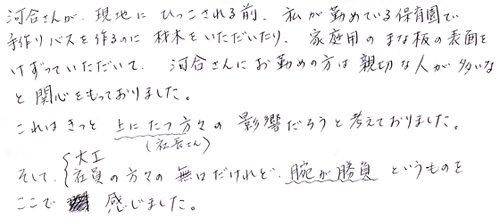 河合さんが、現地にひっこされる前、私が勤めている保育園で
手作りバスを作るのに材木をいただいたり、家庭用のまな板の表面を
けずっていただいて、河合さんにお勤めの方は親切な人が多いな
と関心をもっておりました。
これはきっと上にたつ方々の影響だろうと考えておりました。
(社長さん)
大工
そして、社員の方々の無口だけれど、腕が勝負というものを
ここで感じました。